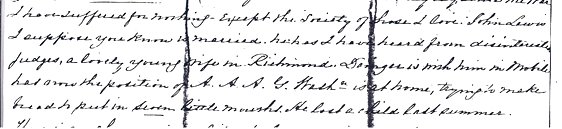 I have suffered for nothing - except the Society of those I love. John Lewis
I suppose you know is married. he has I have heard from disinterested
judges, a lovely young wife in Richmond. is with him in Mobile
has now the position of A. A. A. G. Washn is at home, trying to make
bread to put in seven little mouths. He lost a child last summer.